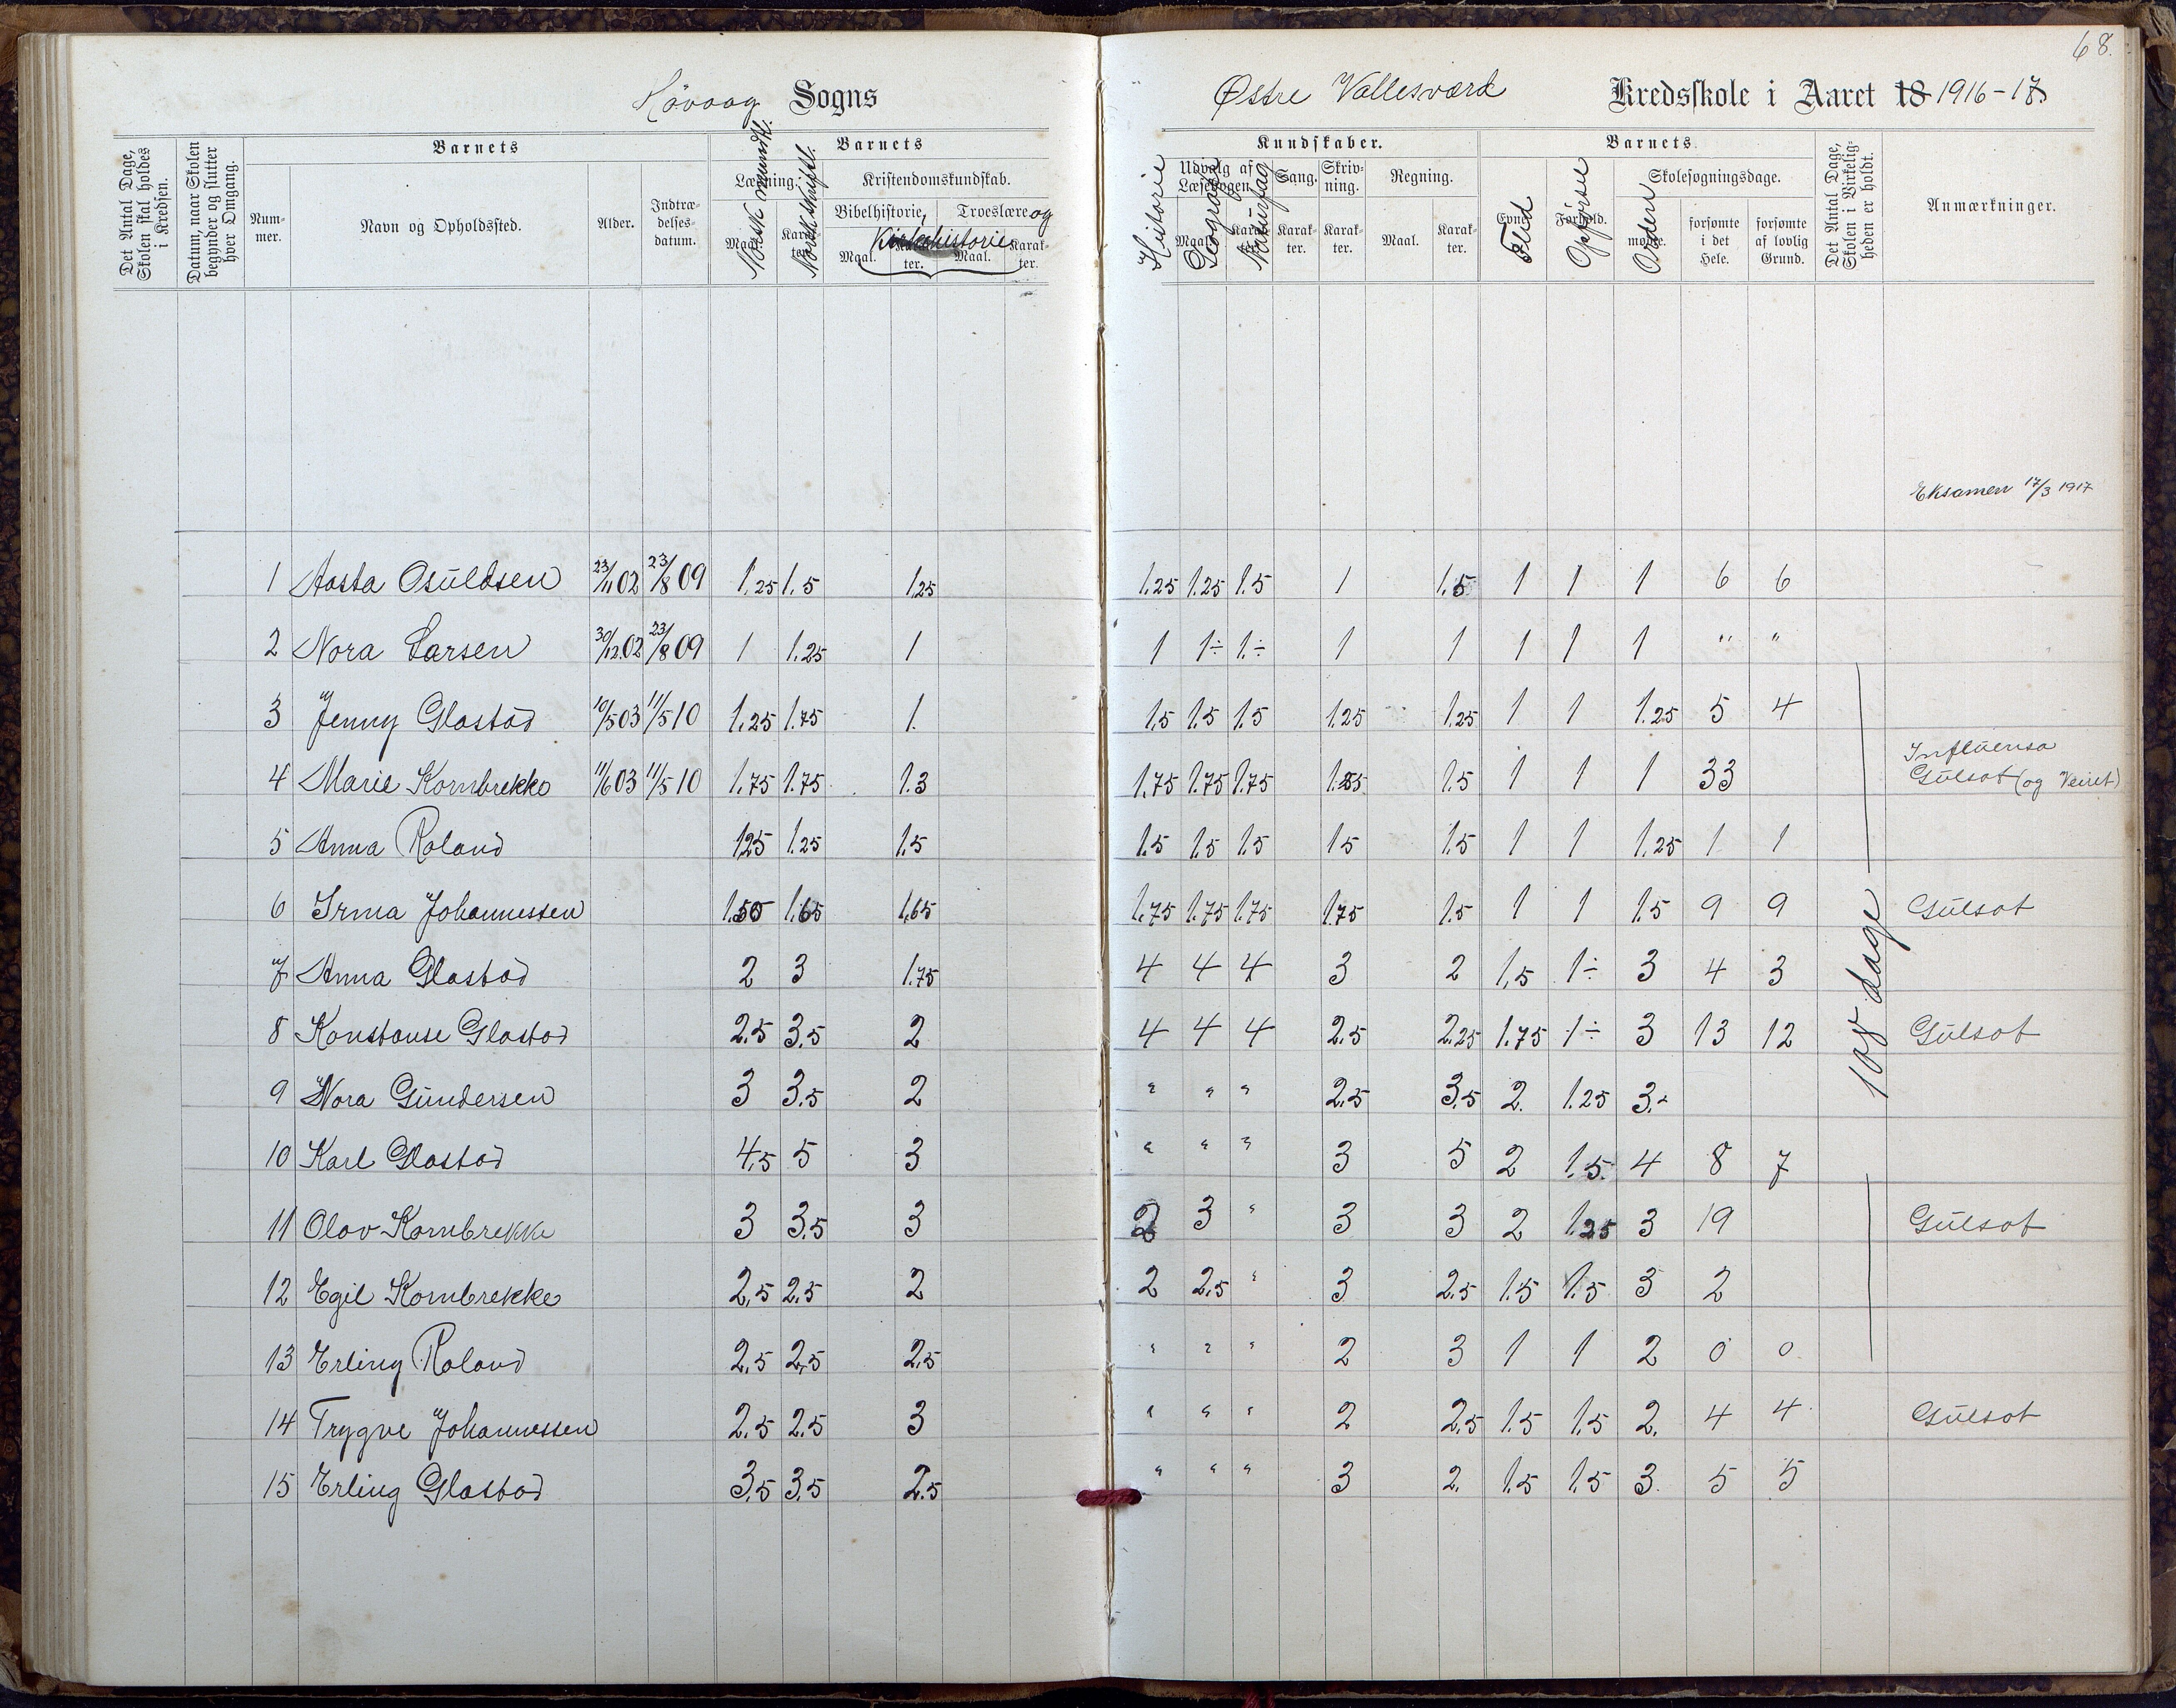 68.
Høvaag Sogns
Østre Vallesværd Kredsskole i Aaret 18 1916-17
Det Antal Dage, Skolen skal holdes i Kredsen.
Datum, naar Skolen begynder og slutter hver Omgang.
Barnets
Nummer.
Navn og Opholdssted.
Alder.
Indtrædelsesdatum.
Barnets
Læsning.
Maal.
Karakter.
Norsk mundtl.
Norsk skriftl.
Kristendomskundskab.
Bibelhistorie, Troeslære og
Kirkehistorie
Maal. Karakter. Maal. Karakter.
Kundskaber.
Historie
Udvalg af Læsebogen.
Maal. Karakter.
Geografi
Naturfag
Sang. Karakter.
Skrivning. Karakter.
Regning.
Maal. Karakter.
Barnets
Evner. Flid
Forhold. Opførsel
Skolesøgningsdage.
mødte. Orden
forsømte i det Hele.
forsømte af lovlig Grund.
Det Antal Dage, Skolen i Virkeligheden er holdt.
Anmærkninger.
Eksamen 17/3 1917
1 Aasta Osuldsen 23/11 02 23/8 09 1,25 1.5 1,25 1.25 1.25 1.5 1 1.5 1 1 1 6 6
2 Nora Larsen 30/12 02 23/8 09 1 1.25 1 1 1÷ 1.÷ 1 1 1 1 1 " "
3 Jenny Glastad 10/5 03 11/5 10 1,25 1.75 1. 1.5 1.5 1.5 1.25 1.25 1 1 1.25 5 4
4 Marie Kornbrekke 11/6 03 11/5 10 1.75 1.75 1.3 1.75 1.75 1.75 1.25 1.5 1 1 1 33 Influensa
Gulsot (og Veiret)
5 Anna Roland 1.25 1.25 1.5 1.5 1.5 1.5 1.5 1.5 1 1 1.25 1 1
6 Irma Johannessen 1.50 1.65 1.65 1.75 1.75 1.75 1.75 1.5 1 1 1.5 9 9 Gulsot
7 Anna Glastad 2 3 1.75 4 4 4 3 2 1,5 1÷ 3 4 3
108 dage
8 Konstanse Glastad 2.5 3.5 2 4 4 4 2.5 2.25 1.75 1÷ 3 13 12 Gulsot
9 Nora Gundersen 3 3.5 2 " " " 2.5 3.5 2. 1.25 3.
10 Karl Glastad 4.5 5 3 " " " 3 5 2 1.5. 4 8 7
11 Olav Kornbrekke 3 3.5 3 2 3 " 3 3 2 1.25 3 19 Gulsot
12 Egil Kornbrekke 2,5 2.5 2 2 2,5 " 3 2.5 1.5 1.5 3 2
13 Erling Roland 2.5 2,5 2.5 " " " 2 3 1 1 2 0 0
14 Trygve Johannessen 2.5 2.5 3 " " " 2 2.5 1.5 1.5 2. 4 4 Gulsot
15 Erling Glastad 3.5 3.5 2.5 " " " 3 2. 1.5 1.5 3. 5 5